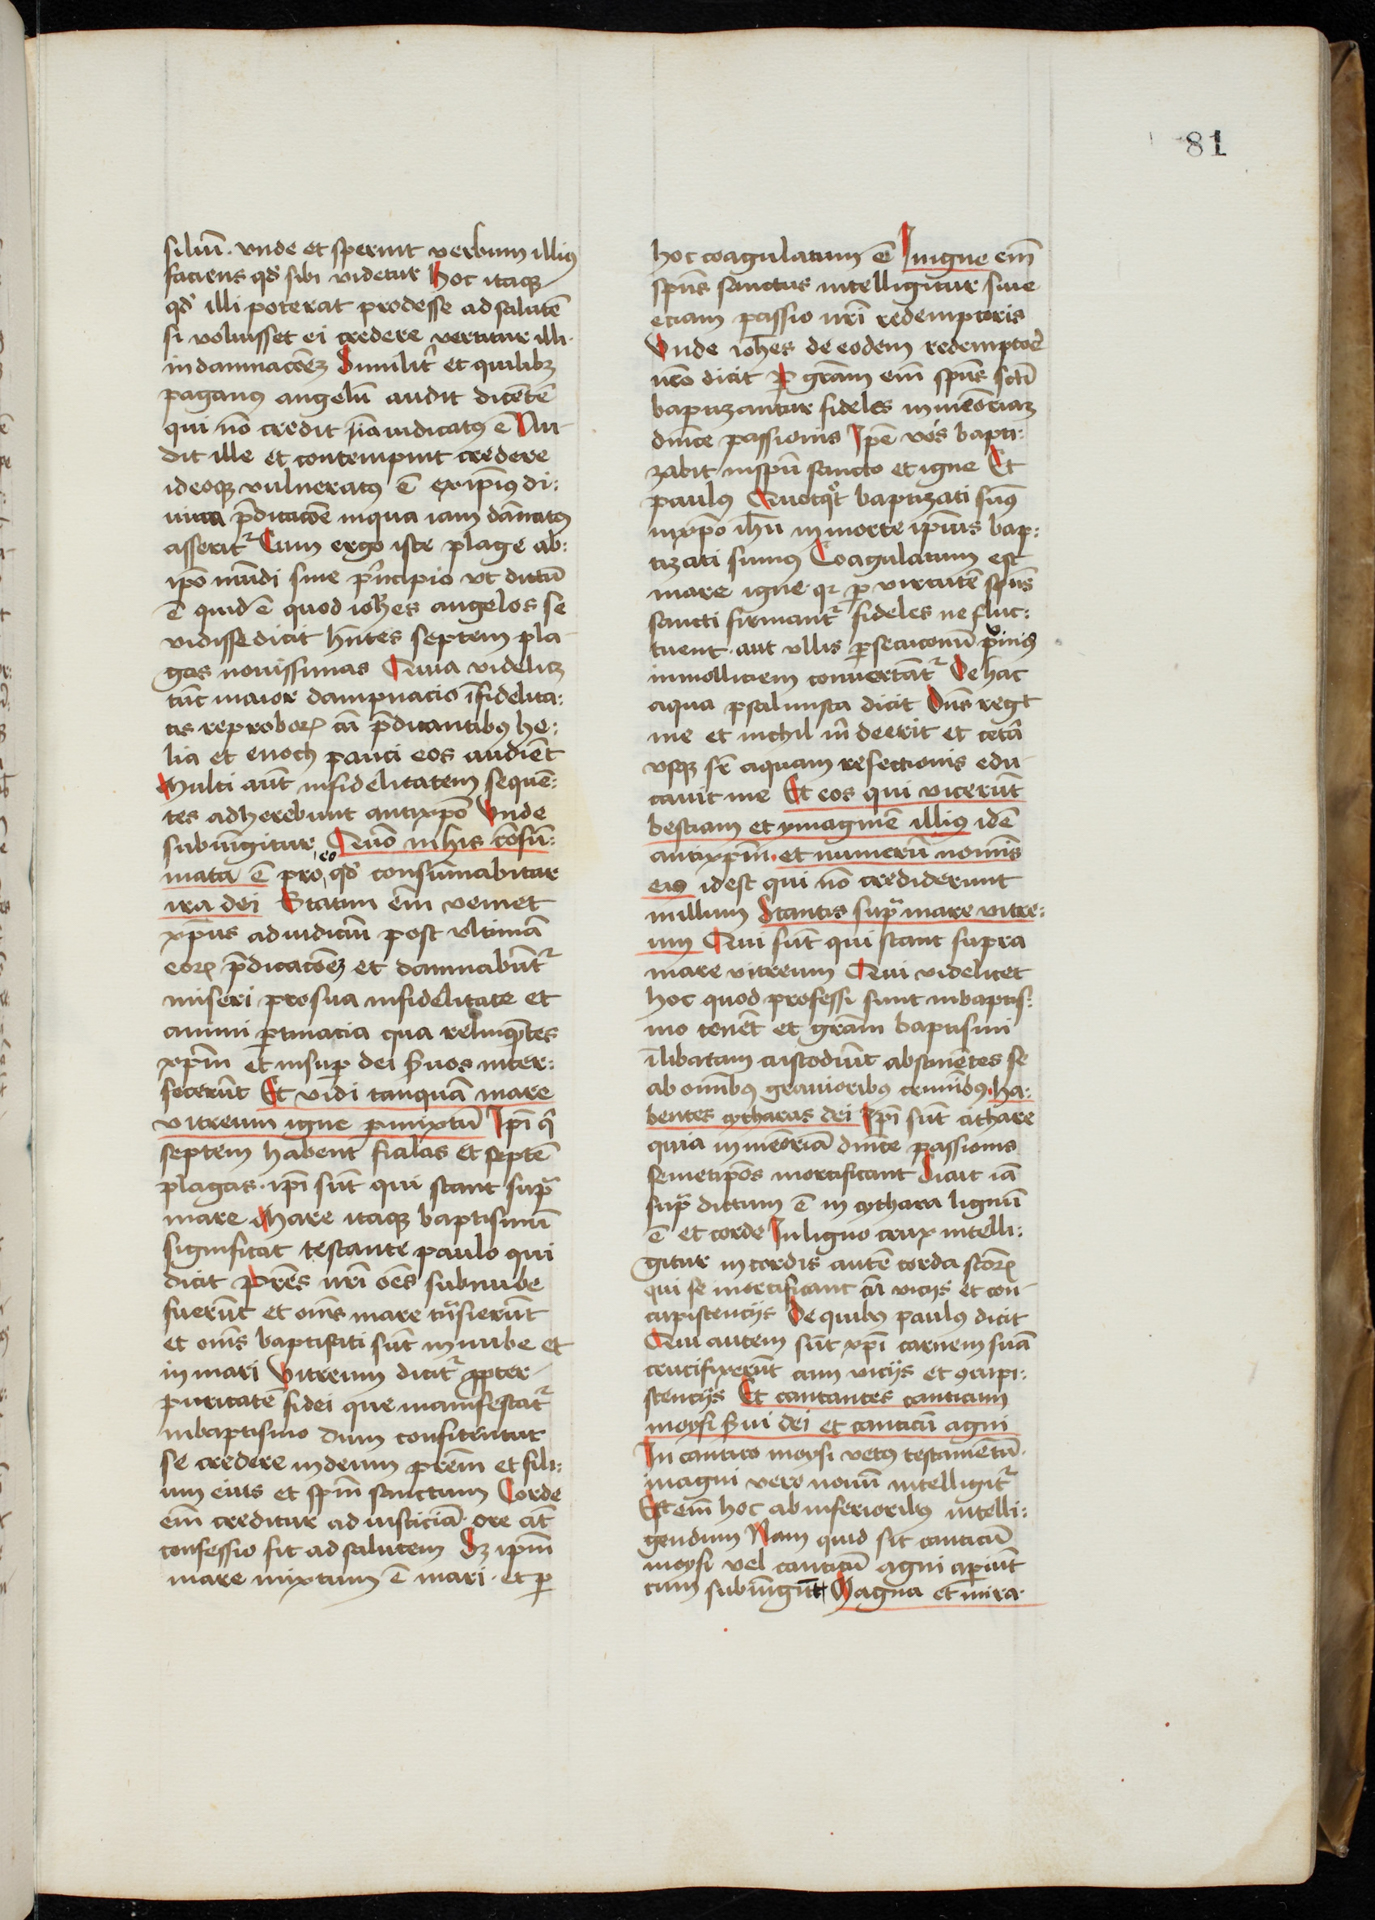 81
siliū · vnde et spernit verbum illius
faciens qd' sibi videtur Hoc itaqꝫ
qd' illi poterat prodesse ad salutē
si voluisset ei credere vertitur illi
in damnacōeꝫ Similit' et quilibꝫ
paganus angelū audit dicētē
qui nō credit iā iudicatus ē Au-
dit ille et contempnit credere
ideoqꝫ vulneratus ē ex ip̄ius di-
uina p̄dicacōe in qua iam dānatus
asserit' Cum ergo iste plage ab
ip̄o mūdi sine p'ncipio vt dictū
ē quid ē quod ioh̄es angelos se
vidisse dicit hn̄tes septem pla-
gas nouissimas Quia videlicꝫ
tūc maior dampnacio īfidelita-
tis reproboꝝ cū p̄dicantibꝰ he-
lia et enoch pauci eos audiēt
Multi aūt infidelitatem sequē-
tes adherebunt antixp̄o Vnde
subiūgitur Quō in his cōsū-
mata ē pro eo qd' consūmabitur
ira dei Statim em̄ veniet
xp̄us ad iudiciū post vltimā
eoꝝ p̄dicacōeꝫ et damnabūt'
miseri pro sua infidelitate et
animi ꝑtinacia qua relinqn̄tes
xp̄m et insuꝑ dei s̄uos inter-
fecerūt Et vidi tanquā mare
vitreum igne ꝑmixtū Ip̄i q̄
septem habent fialas et septē
plagas · ip̄i sūt qui stant sup̄
mare Mare itaqꝫ baptismū
significat testante paulo qui
dicit Pr̄es nr̄i oēs sub nube
fuerūt et oms̄ mare trāsierūt
et oms̄ baptisati sūt in nube et
in mari Vitreum dicit' ꝓpter
puritatē fidei que manifestat'
in baptismo dum confitentur
se credere in deum prēm et fili-
um eius et spm̄ sanctum Corde
em̄ creditur ad iusticiā ore aūt
confessio fit ad salutem Sꝫ ip̄m
mare mixtum ē mari · et ꝑ
hoc coagulatum ē In igne em̄
spūs sanctus intelligitur siue
eciam passio nr̄i redemptoris
Vnde ioh̄es de eodem redemptore
nr̄o dicit Per grām em̄ spūs sc̄ti
baptizantur fideles in mēoriaꝫ
dn̄ice passionis Ip̄e vos bapti-
zabit in spū sancto et igne Et
paulus Quotqͦt baptizati sumꝰ
in xp̄o ihū in morte ip̄ius bap-
tizati sumus Coagulatum est
mare igne · qꝛ ꝑ virtutē spūs
sancti firmant' fideles ne fluc-
tuent aut vllis ꝑsecucionū
in molliciem conuertāt' De hac
aqua psalmista dicit Dn̄s regit
me et nichil m̄ deerit et cetā
vsqꝫ sr̄ aquam refectionis edu-
cauit me Et eos qui vicerūt
bestiam et ymaginē illius idē
antixpm̄ · et numerū nominis
eiꝰ id est qui nō crediderunt
in illum Stantis sup̄ mare vitre-
um Qui sūt qui stant supra
mare vitreum Qui videlicet
hoc quod professi sunt in baptis-
mo tenēt et grām baptismi
īlibatam custodiūt abstinētes se
ab om̄ibus grauioribus crīmibus · ha-
bentes cytharas dei Ip̄i sūt cithare
quia in mēoriā dn̄ice passionis
semetip̄os mortificant Sicut iā
sup̄ dictum ē in cythara lignū
ē et corde In ligno crux intelli-
gitur in cordis autē corda sc̄toꝝ
qui se mortificant cū vicijs et con-
cupiscencijs De quibꝰ paulus dicit
Qui autem sūt xp̄i carnem suā
crucifixerūt cum vicijs et ꝯcupi-
scencijs Et cantantes canticum
moysi s̄ui dei et canticū agni
In cantico moysi vetus testamētū
in agni vero nouū intelligit'
Et em̄ hoc ab inferioribꝰ intelli-
gendum Nam quid sit canticū
moysi vel canticū agni apiūt
cum subiūgūt Magna et mira